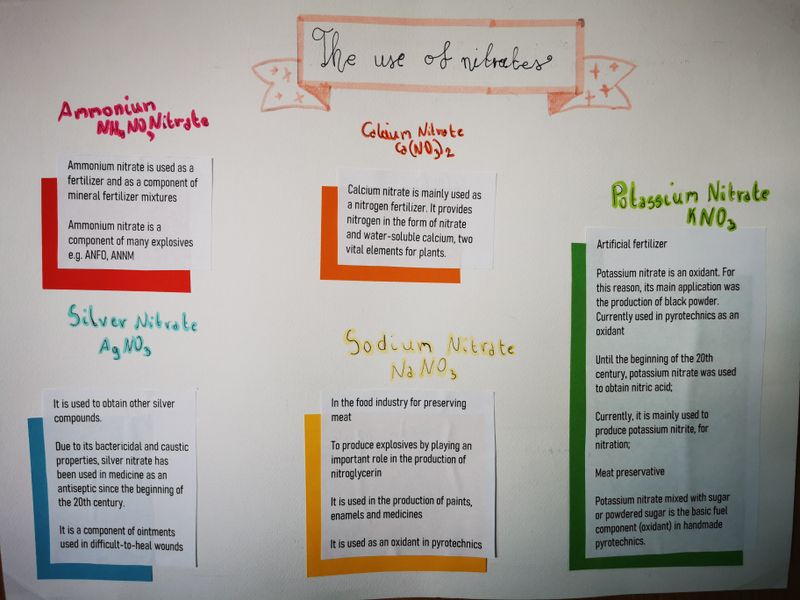 The use of nitrates
Ammonium
NH4NO3 Nitrate
Ammonium nitrate is used as a
fertilizer and as a component of
mineral fertilizer mixtures
Ammonium nitrate is a
component of many explosives
e.g. ANFO, ANNM
Calcium Nitrate
Ca(NO3)2
Calcium nitrate is mainly used as
a nitrogen fertilizer. It provides
nitrogen in the form of nitrate
and water-soluble calcium, two
vital elements for plants.
Potassium Nitrate
KNO3
Artificial fertilizer
Potassium nitrate is an oxidant. For
this reason, its main application was
the production of black powder.
Currently used in pyrotechnics as an
oxidant
Until the beginning of the 20th
century, potassium nitrate was used
to obtain nitric acid;
Currently, it is mainly used to
produce potassium nitrite, for
nitration;
Meat preservative
Potassium nitrate mixed with sugar
or powdered sugar is the basic fuel
component (oxidant) in handmade
pyrotechnics.
Silver Nitrate
AgNO3
It is used to obtain other silver
compounds.
Due to its bactericidal and caustic
properties, silver nitrate has
been used in medicine as an
antiseptic since the beginning of
the 20th century.
It is a component of ointments
used in difficult-to-heal wounds
Sodium Nitrate
NaNO3
In the food industry for preserving
meat
To produce explosives by playing an
important role in the production of
nitroglycerin
It is used in the production of paints,
enamels and medicines
It is used as an oxidant in pyrotechnics